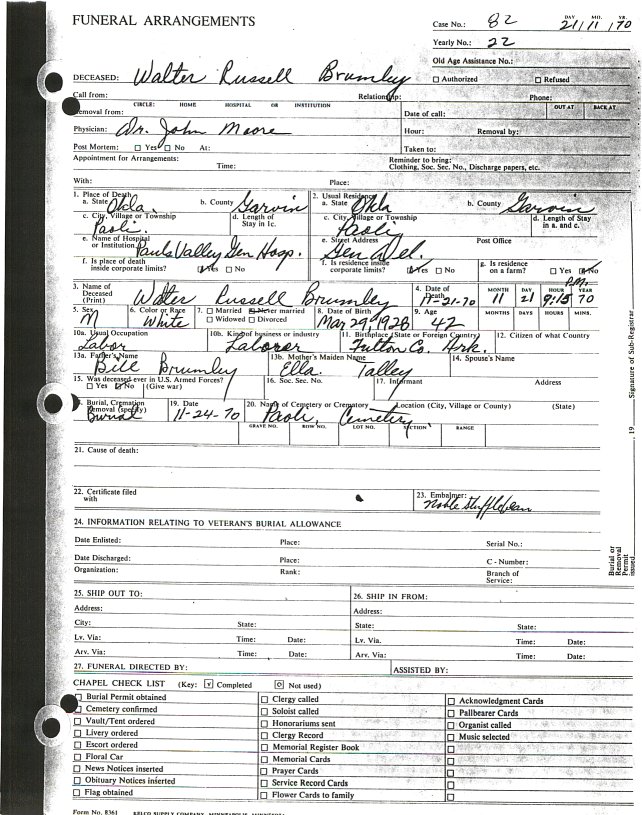 FUNERAL ARRANGEMENTS
Case No.: 82 DAY MO. YR. 21/11/70
Yearly No.: 22
Old Age Assistance No.:
DECEASED: Walter Russell Brumley □ Authorized □ Refused
Call from: Relationship: Phone:
CIRCLE: HOME HOSPITAL OR INSTITUTION OUT AT BACK AT
Removal from: Date of call:
Physician: Dr. John Moore Hour: Removal by:
Post Mortem: □ Yes □ No At: Taken to:
Appointment for Arrangements: Time: Reminder to bring:
Clothing, Soc. Sec. No., Discharge papers, etc.
With: Place:
1. Place of Death 2. Usual Residence
a. State Okla. b. County Garvin a. State Okla b. County Garvin
c. City, Village or Township Paoli. d. Length of Stay in 1c. c. City, Village or Township Paoli d. Length of Stay in a. and c.
e. Name of Hospital or Institution Pauls Valley Gen Hosp. e. Street Address Gen Del. Post Office
f. Is place of death inside corporate limits? Yes □ No f. Is residence inside corporate limits? Yes □ No g. Is residence on a farm? □ Yes No
3. Name of Deceased (Print) Walter Russell Brumley 4. Date of Death 11-21-70 MONTH 11 DAY 21 HOUR 9:15 P.M. YR. 70
5. Sex M 6. Color or Race White 7. □ Married Never married □ Widowed □ Divorced 8. Date of Birth Mar 29, 1928 9. Age 42 MONTHS DAYS HOURS MINS.
10a. Usual Occupation Labor 10b. Kind of business or industry Laborer 11. Birthplace (State or Foreign Country) Fulton Co. Ark. 12. Citizen of what Country
13a. Father's Name Bill Brumley 13b. Mother's Maiden Name Ella Talley 14. Spouse's Name
15. Was deceased ever in U.S. Armed Forces? □ Yes No (Give war) 16. Soc. Sec. No. 17. Informant Address
Burial, Cremation Removal (specify) Burial 19. Date 11-24-70 20. Name of Cemetery or Crematory Paoli, Cemetery Location (City, Village or County) (State)
GRAVE NO. ROW NO. LOT NO. SECTION RANGE
21. Cause of death:
22. Certificate filed with 23. Embalmer: Noble Stufflebean
24. INFORMATION RELATING TO VETERAN'S BURIAL ALLOWANCE
Date Enlisted: Place: Serial No.:
Date Discharged: Place: C - Number:
Organization: Rank: Branch of Service:
25. SHIP OUT TO: 26. SHIP IN FROM:
Address: Address:
City: State: State: State:
Lv. Via: Time: Date: Lv. Via. Time: Date:
Arv. Via: Time: Date: Arv. Via: Time: Date:
27. FUNERAL DIRECTED BY: ASSISTED BY:
CHAPEL CHECK LIST (Key: Completed Not used)
□ Burial Permit obtained □ Clergy called □ Acknowledgment Cards
□ Cemetery confirmed □ Soloist called □ Pallbearer Cards
□ Vault/Tent ordered □ Honorariums sent □ Organist called
□ Livery ordered □ Clergy Record □ Music selected
□ Escort ordered □ Memorial Register Book □
□ Floral Car □ Memorial Cards □
□ News Notices inserted □ Prayer Cards □
□ Obituary Notices inserted □ Service Record Cards □
□ Flag obtained □ Flower Cards to family □
Form No. 8361 KELCO SUPPLY COMPANY, MINNEAPOLIS, MINNESOTA
Burial or Removal Permit issued 19 Signature of Sub-Registrar